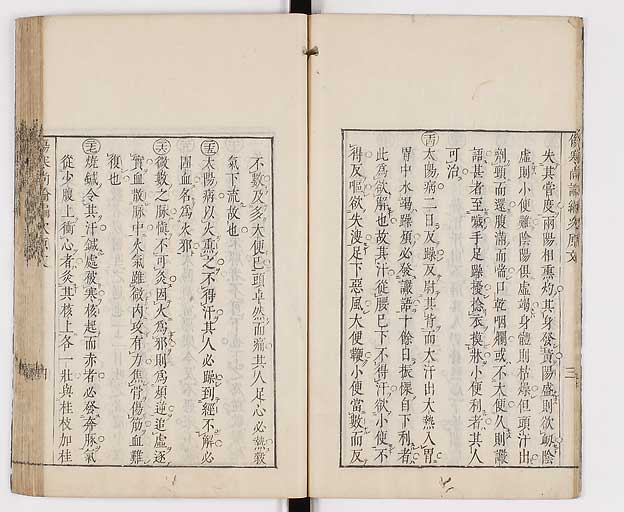 失其常度兩陽相熏灼其身發黃陽盛則欲衂陰
虛則小便難陰陽俱虛竭身體則枯燥但頭汗出
劑頸而還腹滿而喘口乾咽爛或不大便久則讝
語甚者至噦手足躁擾捻衣摸牀小便利者其人
可治
太陽病二日反躁反熨其背而大汗出大熱入胃
胃中水竭躁煩必發讝語十餘日振慄自下利者
此為欲解也故其汗從腰已下不得汗欲小便不
得反嘔欲失溲足下惡風大便鞕小便當數而反
三
不數及多大便已頭卓然而痛其人足心必熱穀
氣下流故也
太陽病以火熏之不得汗其人必躁到經不解必
圊血名為火邪
微數之脉慎不可灸因火為邪則為煩逆追虛逐
實血散脉中火氣雖微內攻有力焦骨傷筋血難
復也
燒鍼令其汗鍼處被寒核起而赤者必發奔豚氣
從少腹上衝心者灸其核上各一壯與桂枝加桂